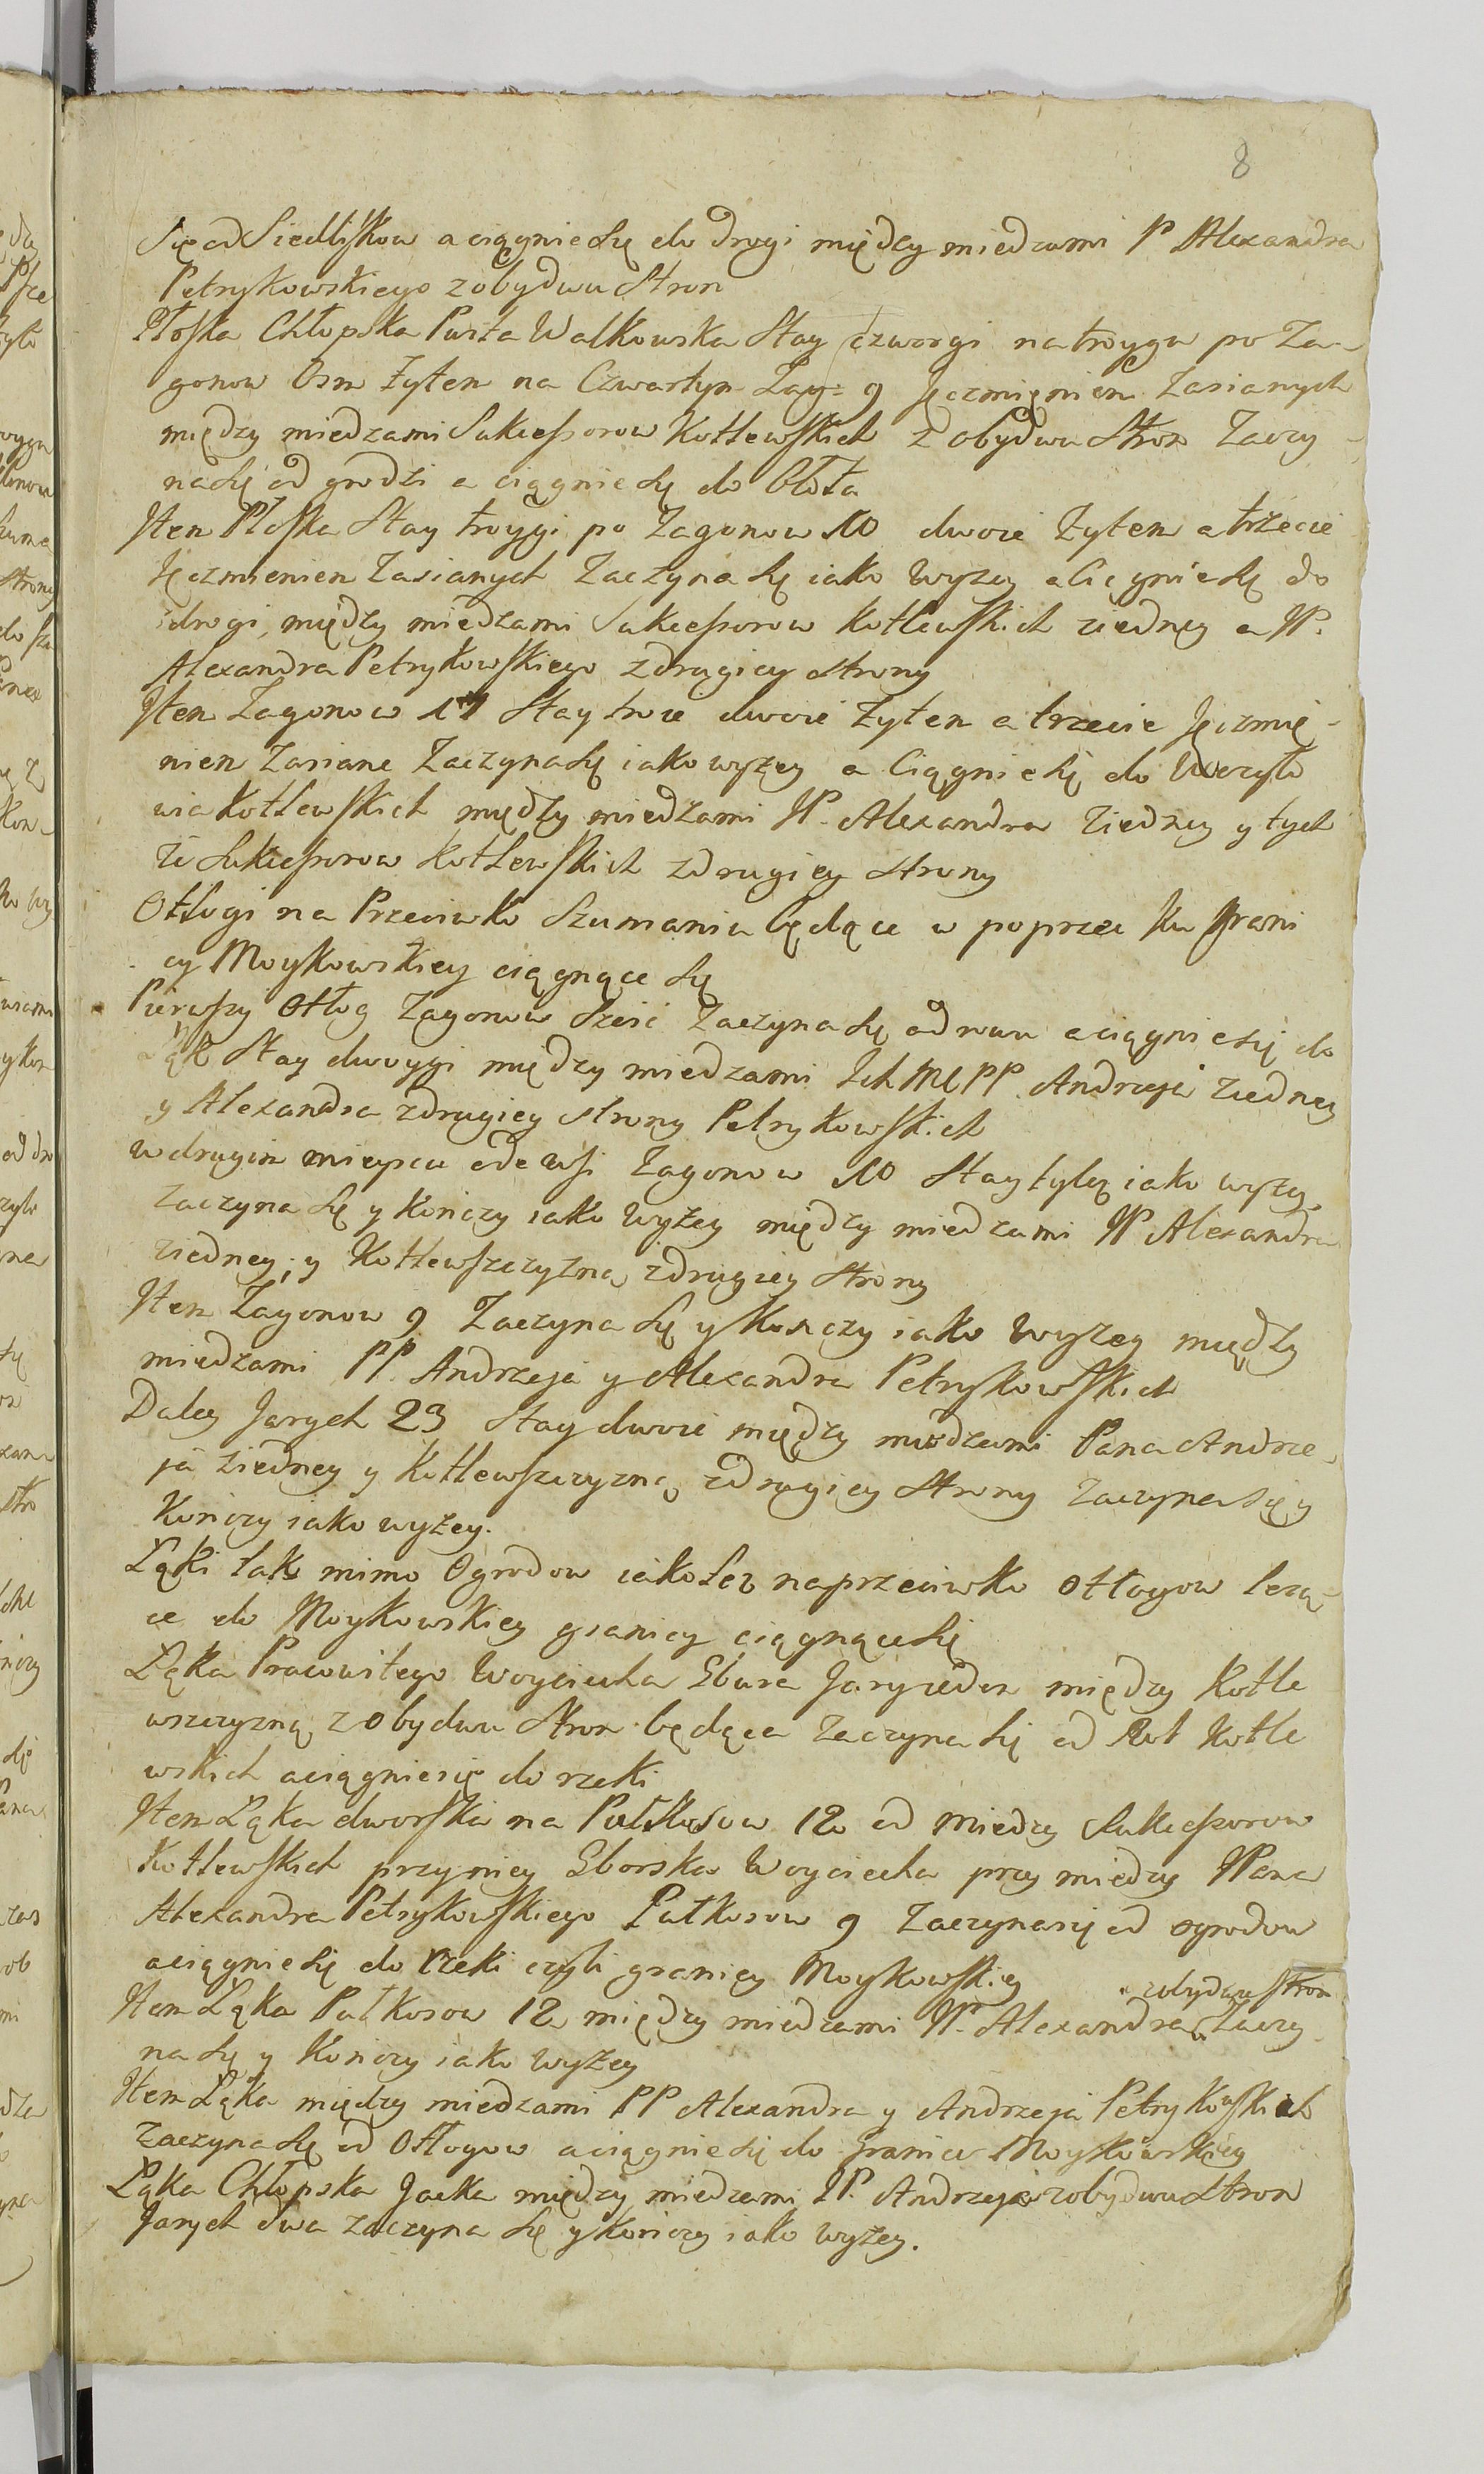 8
Się od Siedliskow a ciągnie się do Drogi między miedzami P Alexandra
Petrykowskiego z obydwu Stron
Płoska Chłopska Pusta Walkowska Stay czworgi na troygu po Za-
gonow Osm Żytem na Czwartym Zag: 9 Jęczmieniem Zasianych
między miedzami Sukcessorow Kotlewskich z obydwu Stron Zaczy-
na się od grodzi a ciągnie się do Błota
Item Płoska Stay troygi po Zagonow 10 dwoie Żytem a trzecie
Jęczmieniem Zasianych Zaczyna się iako Wyzey a Ciągnie się do
drogi, między miedzami Sukcessorow Kotlewskich ziedney a JP.
Alexandra Petrykowskiego zdrugiey strony
Item Zagonow 17 Stay troie dwoie Żytem a trzecie Jęczmie-
niem Zasiane Zaczyna się iako wyżey a Ciągnie się do
Kotlewskich między miedzami JP. Alexandra Ziedney y tych
że Sukcessorow Kotlewskich zdrugiey Strony
Otłogi na Przeciwko Szumania będące w poprzek ku Grani
cy Moykowskiey ciągnące się
Pierwszy Otłog Zagonow Sześć Zaczyna się od rowu a ciągnie się do
Łąk Stay dwoygi między miedzami PP. Andrzeja ziedney
y Alexandra zdrugiey strony Petrykowskich
w drugim mieyscu ode wsi Zagonow 10 Stay tylęż iako wyżey
zaczyna się y kończy iako Wyżey między miedzami JP Alexandra
ziedney; y Kotlewszczyzną zdrugiey Strony
Item Zagonow 9 Zaczyna się y kończy iako Wyżey między
miedzami PP. Andrzeja y Alexandra Petrykowskich
Daley Jarych 23 Stay dwoie między miedzami Pana Andrze-
ja ziedney y Kotlewszczyzną zdrugiey Strony Zaczyna się y
Kończy iako wyżey.
Łąki tak mimo Ogrodow iako też naprzeciwko Otłogow leżą-
ce do Moykowskiey granicy ciągnące się
Łąka Pracowitego Woyciecha Jary ieden między Kotle
wszczyzną z obydwu Stron będąca zaczyna się od Kotle
wskich a ciągnie się do rzeki
Item Łąka dworska na Pułkosow 12 od Miedzy Sukcessorow
Kotlewskich przy niey Woyciecha przy miedzy JPana
Alexandra Petrykowskiego Pułkosow 9 Zaczyna się od ogrodow
a ciągnie się do rzeki czyli granicy Moykowskiey
z obydwu Stron
Item Łąka Pułkosow 12 między miedzami JP. Alexandra Zaczy
na się y Kończy iako Wyżey
Item Łąka między miedzami PP Alexandra y Andrzeja Petrykowskich
Zaczyna się od Otłogow a ciągnie się do Granicy Moykowskiey
Łąka Chłopska Jacka między miedzami JP. Andrzeja z obydwu Stron
Jarych dwa zaczyna się y Kończy iako wyżey.